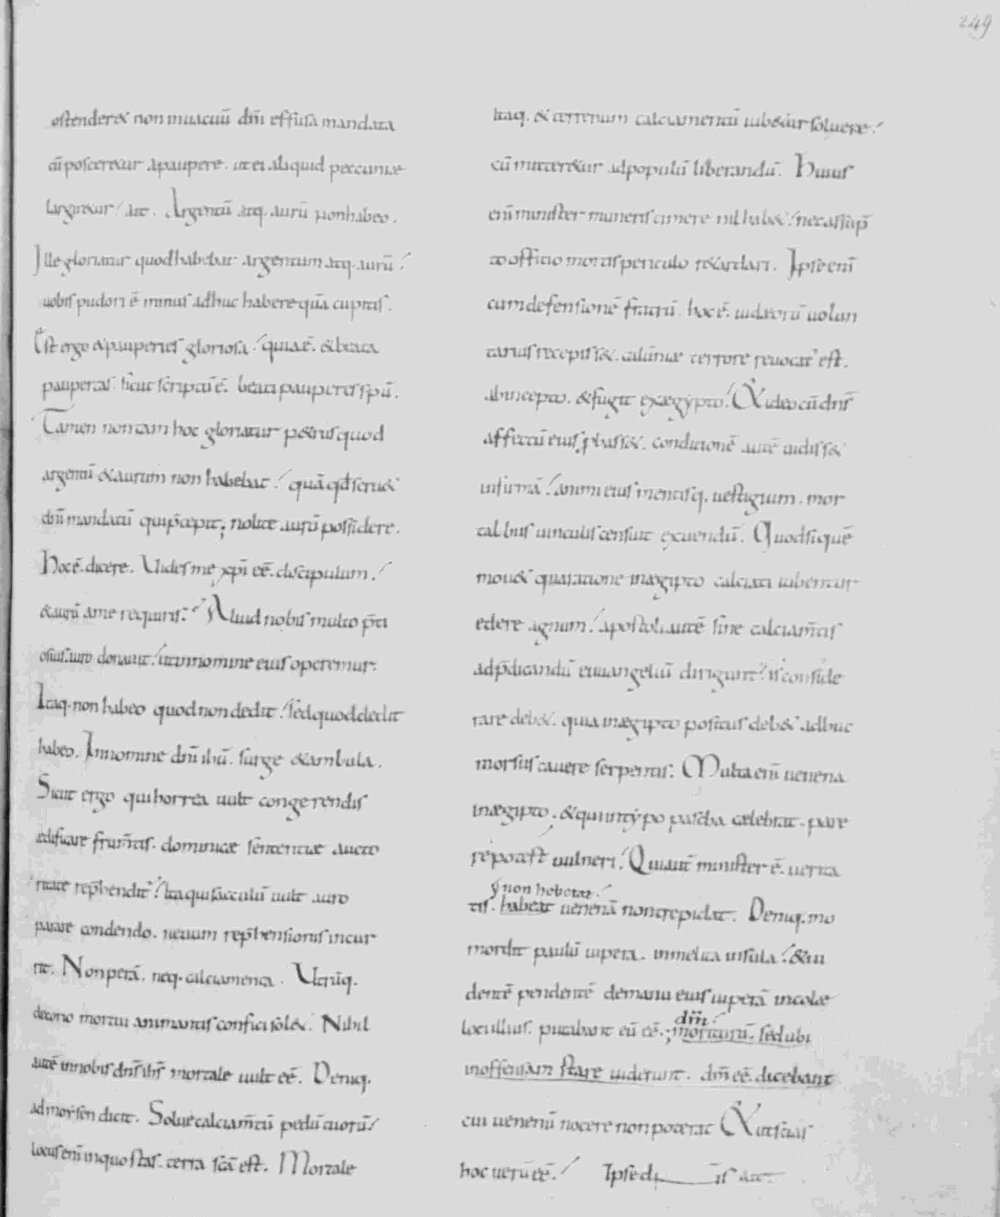 249
ostender& non inuacuū dn̄i effusa mandata
cū posceretur apaupere. ut ei aliquid peccuniæ
largiretur. ait. Argentū atq. aurū non habeo.
Ille gloriatur quod habebat argentum atq. aurū.
uobis pudori ē minus adhuc habere quā cupitis.
Est ergo & pauperies gloriosa. quia ē. & beata
paupertas. sicut scriptū ē. beati pauperes spū.
Tamen non tam hoc gloriatur p&rus quod
argentū & aurum non habebat. quā qd̄ seru&
dn̄i mandatū qui p̄cepit; nolite aurū possidere.
Hoc ē. dicere. Uides me xp̄i eē. discipulum.
& aurū ame requiris. Aliud nobis multo p̄ti
osius. auro donauit. ut in nomine eius operemur.
Itaq. non habeo quod non dedit. sed quod dedit
habeo. In nomine dn̄i ihū. surge & ambula.
Sicut ergo qui horrea uult congerendis
ædificare frum̄tis. dominicæ sententiæ aucto
ritate rep̄hendit. Ita qui sacculū uult auro
parare condendo. neuum rep̄hensionis incur
rit. Non perā. neq. calciamenta. Utrūq.
decorio mortui animantis confici sol&. Nihil
autē in nobis dn̄s ihs̄ mortale uult eē. Deniq.
ad moysen dicit. Solue calciam̄tū pedū tuorū
locus eni̅ in quo stas. terra sc̄a est. Mortale
Itaq. & terrenum calciamentū iub&ur soluere.
cū mitter&ur ad populū liberandū. Huius
enī minister muneris timere nil hab&. nec assūp
to officio mortis periculo r&ardari. Ipse enī
cum defensionē fratrū. hoc ē. iudæorū uolun
tarius recepiss&. calūniæ terrore reuocat' est.
ab incepto. & fugit ex ægypto. Et ideo cū dn̄s
affectū eius pbass&. conditionē autē uidiss&
infirmā. animi eius mentisq. uestigium. mor
talibus uinculis censuit exuendū. Quod si quē
mou& qua ratione in ægipto calciati iubentur
edere agnum. apostoli autē sine calciam̄tis
ad p̄dicandū euuangeliū dirigunt'. is conside
rare deb&. quia in ægipto positus deb& adhuc
morsus cauere serpentis. Multa enī uenena
in ægipto. & qui in typo pascha celebrat. pare
re potest uulneri. Qui autē minister ē. uerita
ÿ non hebetat.
tis. habeat uenena non trepidat. Deniq. mo
mordit paulū uipera. in melita insula. & in
dentē pendentē de manu eius uiperā incolæ
loci illius. putabant eū eē. moriturū. sed ubi
dm̄.
inoffensam stare uiderunt. dm̄ eē. dicebant
cui uenenū nocere non poterat Et ut scias
hoc uerū eē. Ipse d is ait.